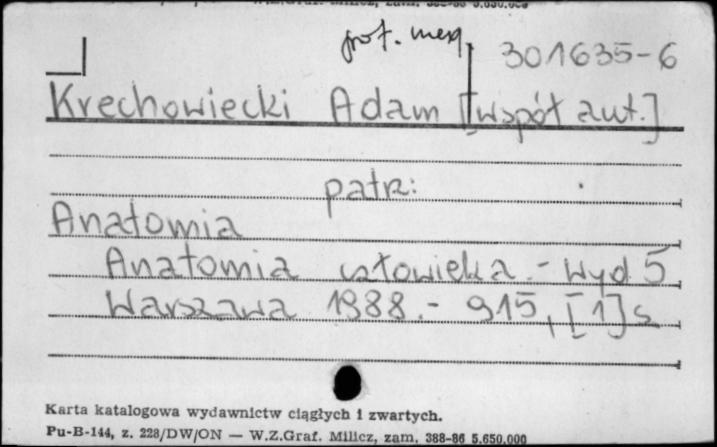 prof. med.
301635-6
Krechowiecki Adam [współaut.]
patrz:
Anatomia
Anatomia człowieka. - Wyd 5
Warszawa 1988. - 915, [1] s
Karta katalogowa wydawnictw ciągłych i zwartych.
Pu-B-144, z. 228/DW/ON — W.Z.Graf. Milicz, zam. 388-86 5.650.000